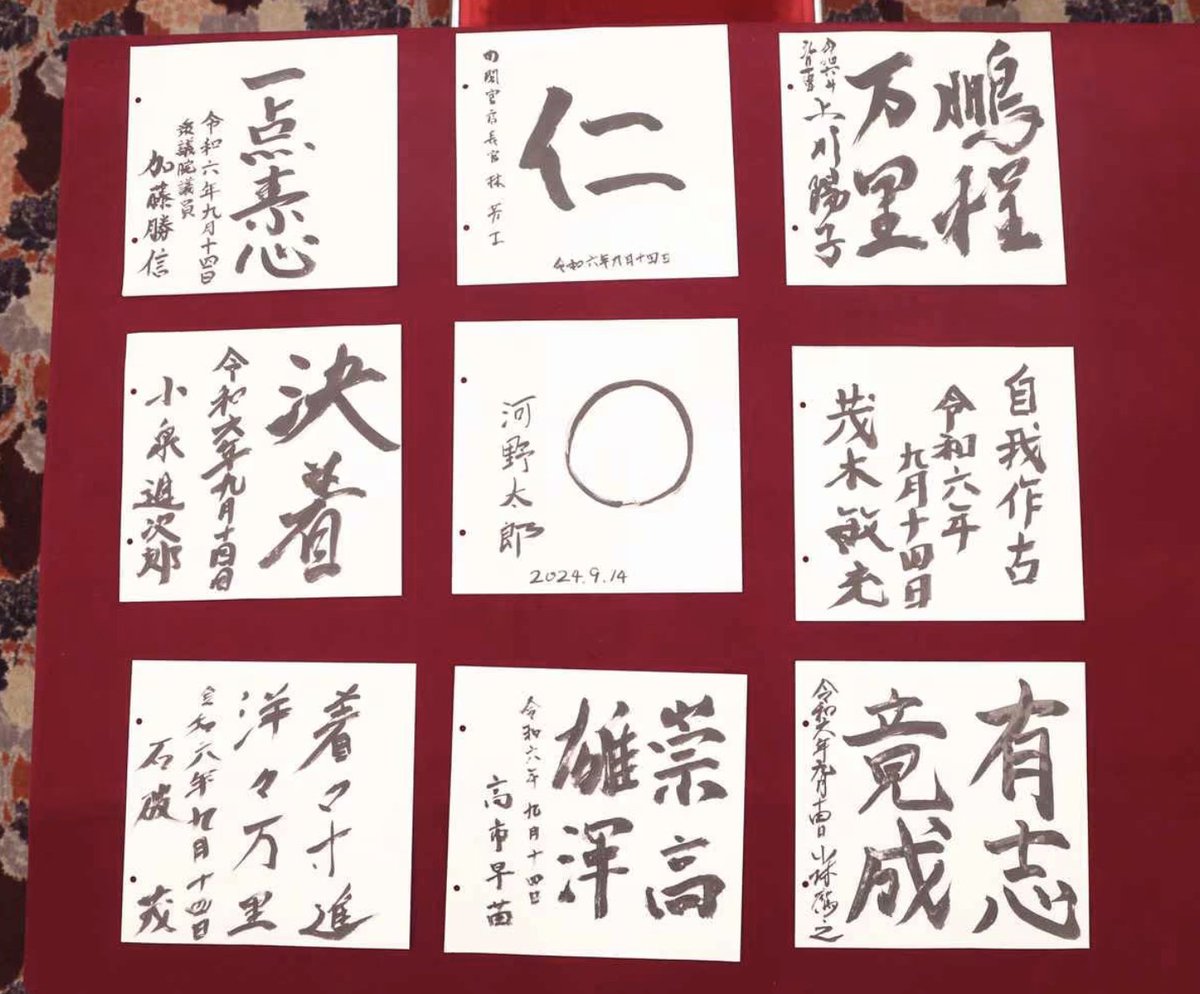 一点素心
令和六年九月十四日
衆議院議員
加藤勝信
内閣官房長官 林芳正
仁
令和六年九月十四日
鵬程
万里
令和六年
九月十四日
上川陽子
決着
令和六年九月十四日
小泉進次郎
河野太郎
2024.9.14
自我作古
令和六年
九月十四日
茂木敏充
着々寸進
洋々万里
令和六年九月十四日
石破 茂
崇高
雄渾
令和六年九月十四日
高市早苗
有志
竟成
令和六年九月十四日 小林鷹之